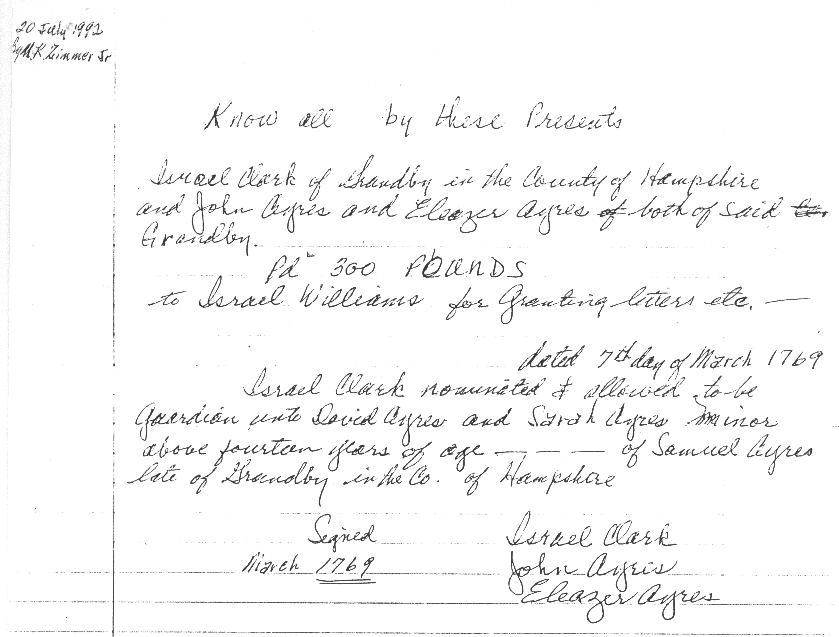 20 July 1992
By M.K. Zimmer Jr
Know all by these Presents
Israel Clark of Grandby in the County of Hampshire
and John Ayres and Eleazer Ayres of both of said
Grandby.
Pd 300 POUNDS
to Israel Williams for Granting letters etc. —
dated 7th day of March 1769
Israel Clark nominated & allowed to be
Guardian unto David Ayres and Sarah Ayres minor
above fourteen years of age — — — of Samuel Ayres
late of Grandby in the Co. of Hampshire
Signed Israel Clark
March 1769 John Ayris
Eleazer Ayres